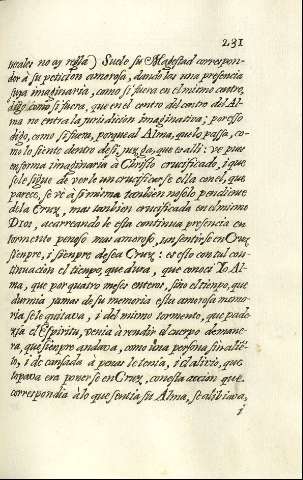 231
turales no ay regla) Suele su Magestad correspon-
der à su peticion amorosa, dandoles una presencia
suya imaginaria, como si fuera en el mismo centro,
digo, como si fuera, que en el centro del centro del Al-
ma no entra la jurisdicion imaginativa; por esso
digo, como si fuera, porque al Alma, que lo passa, co-
mo lo siente dentro de si, juzga, que es alli: ve pues
en forma imaginaria à Christo crucificado, i que
se le sigue de verle un crucificarse ella con el, que
parece, se ve à si misma tambien no solo pendiente
de la Cruz, mas tambien crucificada en el mismo
Dios, acarreandole esta continua presencia un
tormento penoso mas amoroso, un sentirse en Cruz
siempre, i siempre desea Cruz: es esto con tal con-
tinuacion el tiempo, que dura, que conoci Yo Al-
ma, que por quatro meses enteros, sino el tiempo, que
dormia jamas de su memoria esta amorosa memo-
ria se le quitava, i del mismo tormento, que pade-
zia el Espiritu, venia à rendir el cuerpo de mane-
ra, que siempre andava, como una persona, sin alie-
to, i de cansada à penas le tenia, i el alivio, que
topava era ponerse en Cruz, con esta accion que
correspondia à lo que sentia su Alma, se aliviava,
i